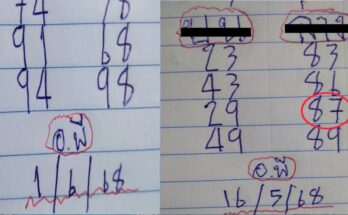 74 78
91 68
94 98
อ.พี
1/6/68
23 83
43 86
29 87
49 89
อ.พี
16/5/68